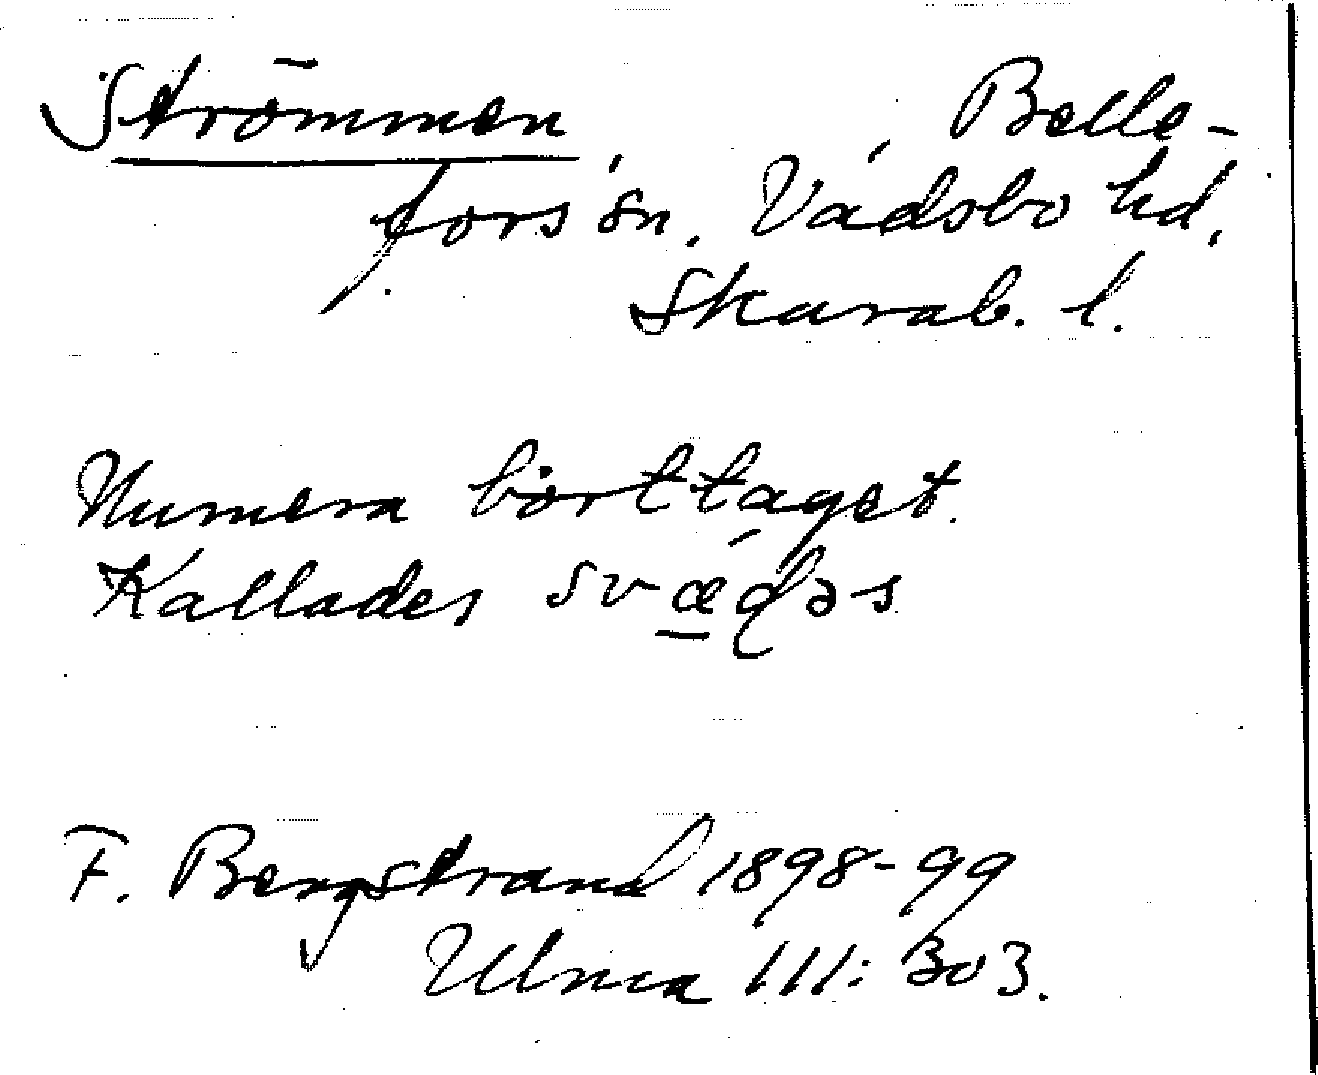 Strömmen, Belle-
fors sn. Vadsbo hd,
Skarab. l.
Numera borttaget.
Kallades
F. Bergstrand 1898-99
Ulma 111: 303.